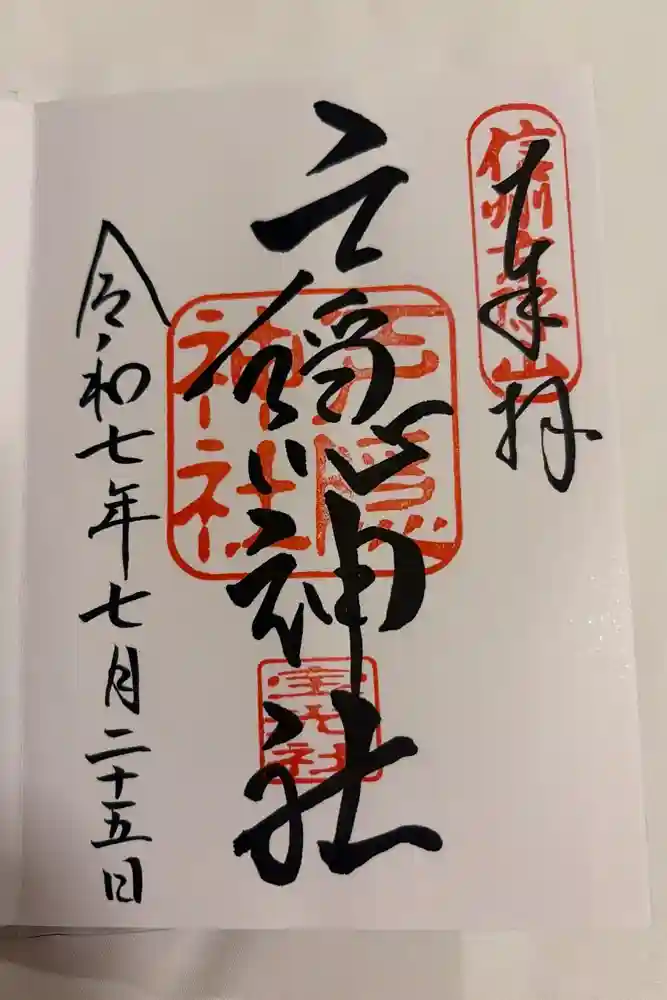 奉拝
信州戸隠山
戸隠神社
戸隠神社
宝光社
令和七年七月二十五日